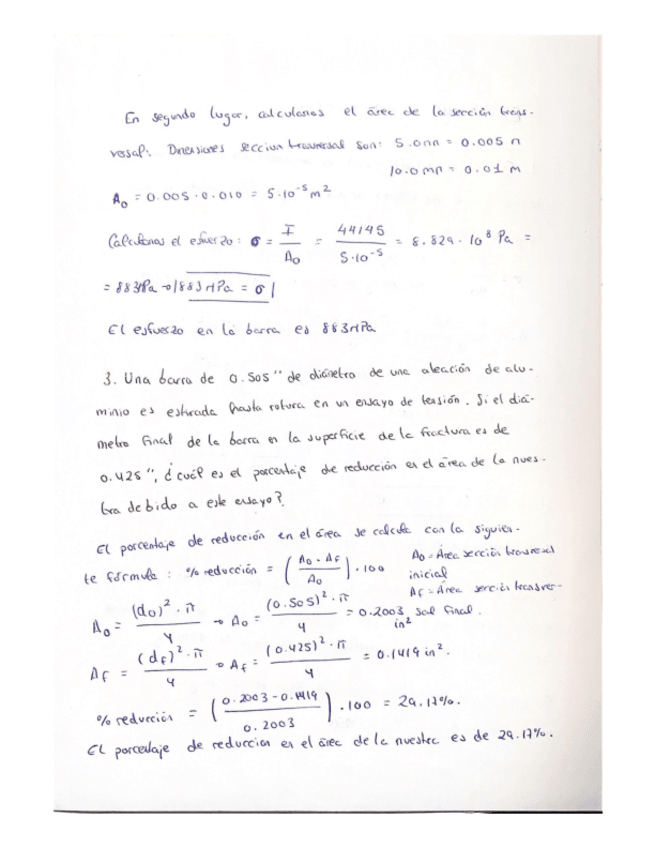 En segundo lugar, calculamos el área de la sección trans-
versal: Dimensiones sección transversal son: 5.0mm = 0.005 m
10.0 mm = 0.01 m
A₀ = 0.005 · 0.010 = 5·10⁻⁵ m²
Calculamos el esfuerzo: σ = F/A₀ = 44145/5·10⁻⁵ = 8.829 · 10⁸ Pa =
= 883MPa → |883 MPa = σ|
El esfuerzo en la barra es 883MPa
3. Una barra de 0.505" de diámetro de una aleación de alu-
minio es estirada hasta rotura en un ensayo de tensión. Si el diá-
metro final de la barra en la superficie de la fractura es de
0.425", ¿cuál es el porcentaje de reducción en el área de la mues-
tra debido a este ensayo?
El porcentaje de reducción en el área se calcula con la siguien-
te fórmula: % reducción = ((A₀ - Af)/A₀) · 100
A₀ = Área sección transversal
inicial
Af = Área sección transver-
sal final.
A₀ = (d₀)² · π/4 → A₀ = (0.505)² · π/4 = 0.2003 in²
Af = (df)² · π/4 → Af = (0.425)² · π/4 = 0.1419 in².
% reducción = ((0.2003 - 0.1419)/0.2003) · 100 = 29.17%.
El porcentaje de reducción en el área de la muestra es de 29.17%.